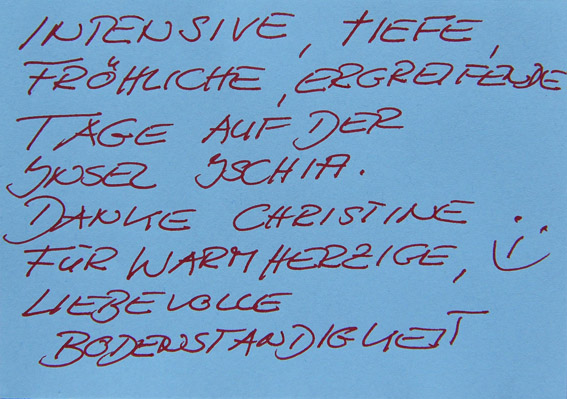 INTENSIVE, TIEFE,
FRÖHLICHE, ERGREIFENDE
TAGE AUF DER
INSEL ISCHIA.
DANKE CHRISTINE
FÜR WARMHERZIGE,
LIEBEVOLLE
BODENSTANDIGKEIT